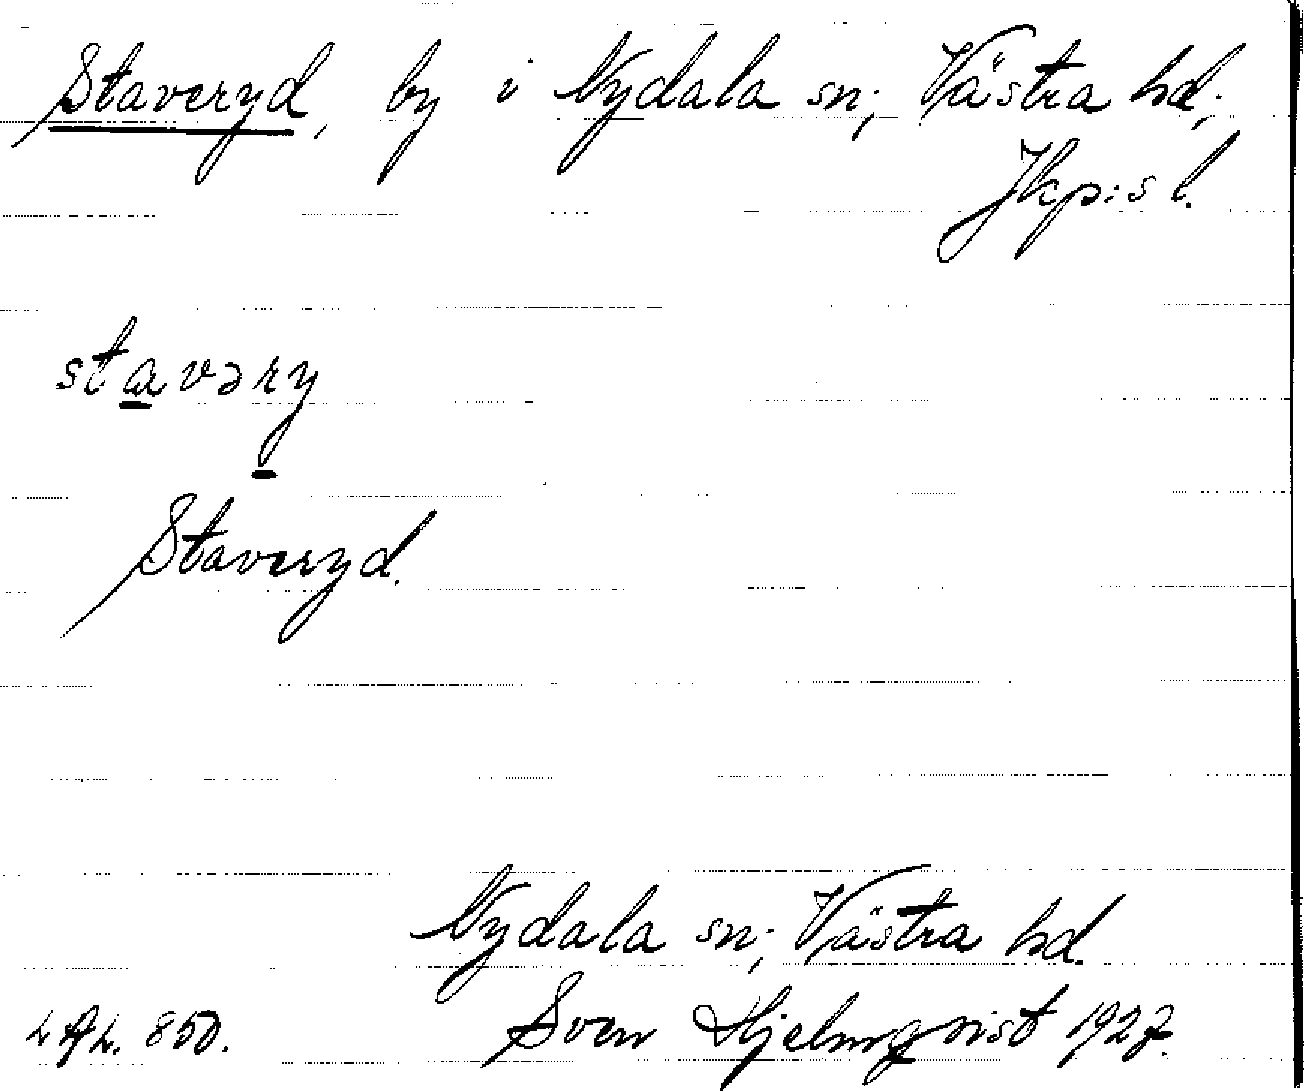 Staveryd, by i Nydala sn; Västra hd;
Jkp:s l.
stavəry
Staveryd.
Nydala sn; Västra hd.
850. Sven Hjelmqvist 1927.